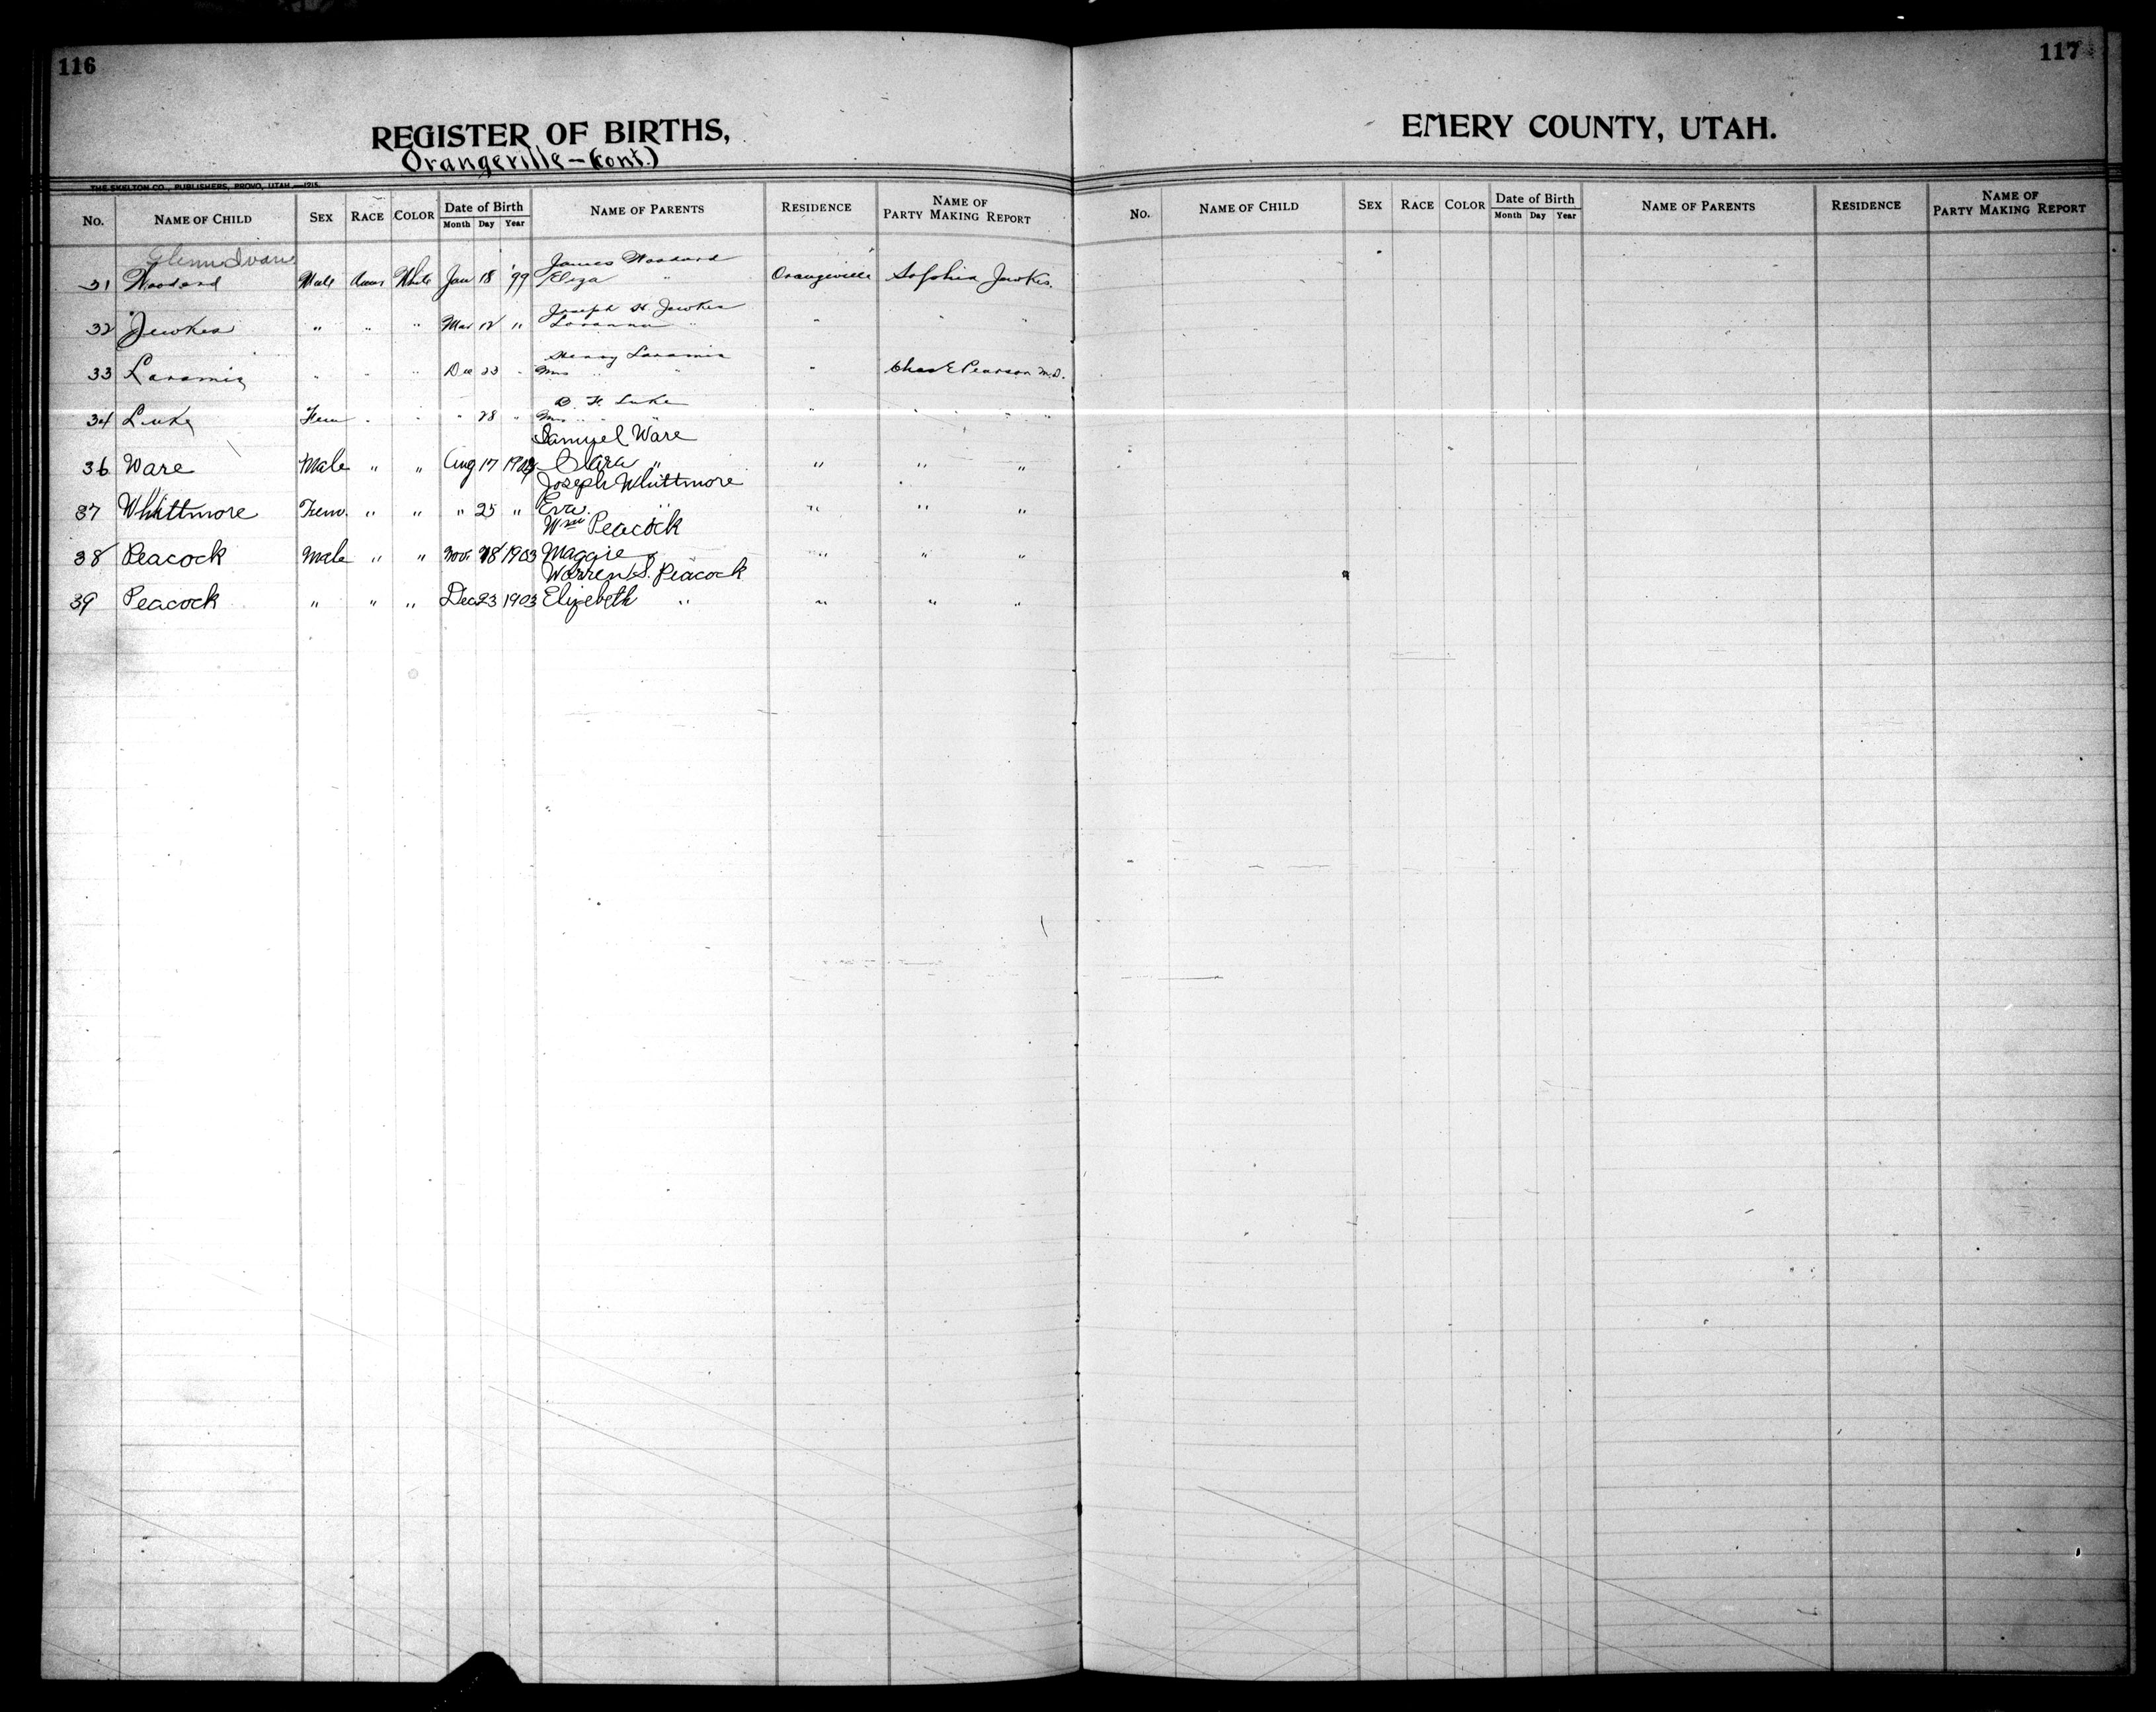 116
REGISTER OF BIRTHS,
Orangeville - (Cont.)
THE SKELTON CO., PUBLISHERS, PROVO, UTAH.—1215
No. NAME OF CHILD SEX RACE COLOR Date of Birth Month Day Year NAME OF PARENTS RESIDENCE NAME OF PARTY MAKING REPORT
Glenn Ivan James Woodard
31 Woodard Male Amr White Jan 18 '99 Eliza " Orangeville Sophia Jewkes.
Joseph H. Jewkes
32 Jewkes " " " Mar 12 " " " " "
Henry Laramie
33 Laramie " " " Dec 23 " Mrs " " " Chas E Pearson M.D.
B. F. Luke
34 Luke Fem " " " 28 " Mrs " " " " " "
Samuel Ware
36 Ware Male " " Aug 17 Clara " " " "
Joseph Whittmore
37 Whittmore Fem. " " " 25 " Eva. " " " "
Wm Peacock
38 Peacock Male " " Nov. 18 1903 Maggie " " " "
Warren S. Peacock
39 Peacock " " " Dec 23 1903 Elizebeth " " " "
117
EMERY COUNTY, UTAH.
No. NAME OF CHILD SEX RACE COLOR Date of Birth Month Day Year NAME OF PARENTS RESIDENCE NAME OF PARTY MAKING REPORT